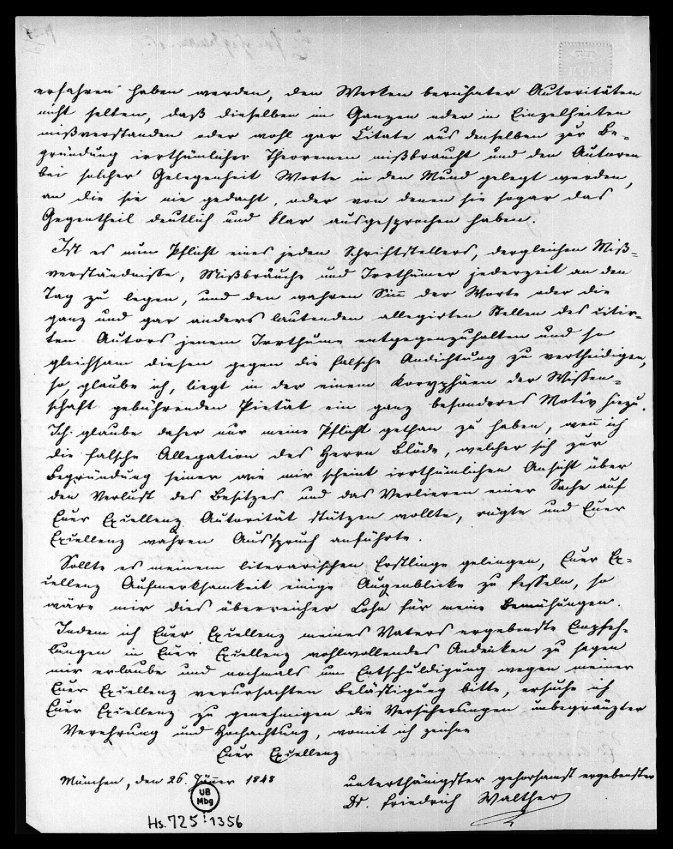 erfahren haben werden, den Werken berühmter Autoritäten
nicht selten, daß dieselben im Ganzen oder in Einzelheiten
mißverstanden oder wohl gar Citate aus denselben zur Be-
gründung irrthümlicher Theoremen mißbraucht und den Autoren
bei solcher Gelegenheit Worte in den Mund gelegt werden,
an die sie nie gedacht, oder von denen sie sogar das
Gegentheil deutlich und klar ausgesprochen haben.
Ist es nun Pflicht eines jeden Schriftstellers, dergleichen Miß-
verständnisse, Mißbräuche und Irrthümer jederzeit an den
Tag zu legen, und den wahren Sinn der Worte oder die
ganz und gar anders lautenden allegirten Stellen des citir-
ten Autors jenem Irrthume entgegenzuhalten und so
gleichsam diesen gegen die falsche Andichtung zu vertheidigen,
so, glaube ich, liegt in der einem Koryphäen der Wissen-
schaft gebührenden Pietät ein ganz besonderes Motiv hiezu.
Ich glaube daher nur meine Pflicht gethan zu haben, wenn ich
die falsche Allegation des Herrn Blüde, welcher sich zur
Begründung seiner wie mir scheint irrthümlichen Ansicht über
den Verlust des Besitzes und das Verlieren einer Sache auf
Euer Excellenz Autorität stützen wollte, rügte und Euer
Excellenz wahren Ausspruch anführte.
Sollte es meinem literarischen Erstlinge gelingen, Euer Ex-
cellenz Aufmerksamkeit einige Augenblicke zu fesseln, so
wäre mir dies überreicher Lohn für meine Bemühungen.
Indem ich Euer Excellenz meines Vaters ergebenste Empfeh-
lungen in Euer Excellenz wohlwollendes Andenken zu sagen
mir erlaube und nochmals um Entschuldigung wegen meiner
Euer Excellenz verursachten Belästigung bitte, ersuche ich
Euer Excellenz zu genehmigen die Versicherungen unbegränzter
Verehrung und Hochachtung, womit ich zeichne
Euer Excellenz
München, den 26. Jäner 1848
unterthänigster gehorsamst ergebenster
Dr. Friedrich Walther
UB
Mbg
Hs. 725:1356